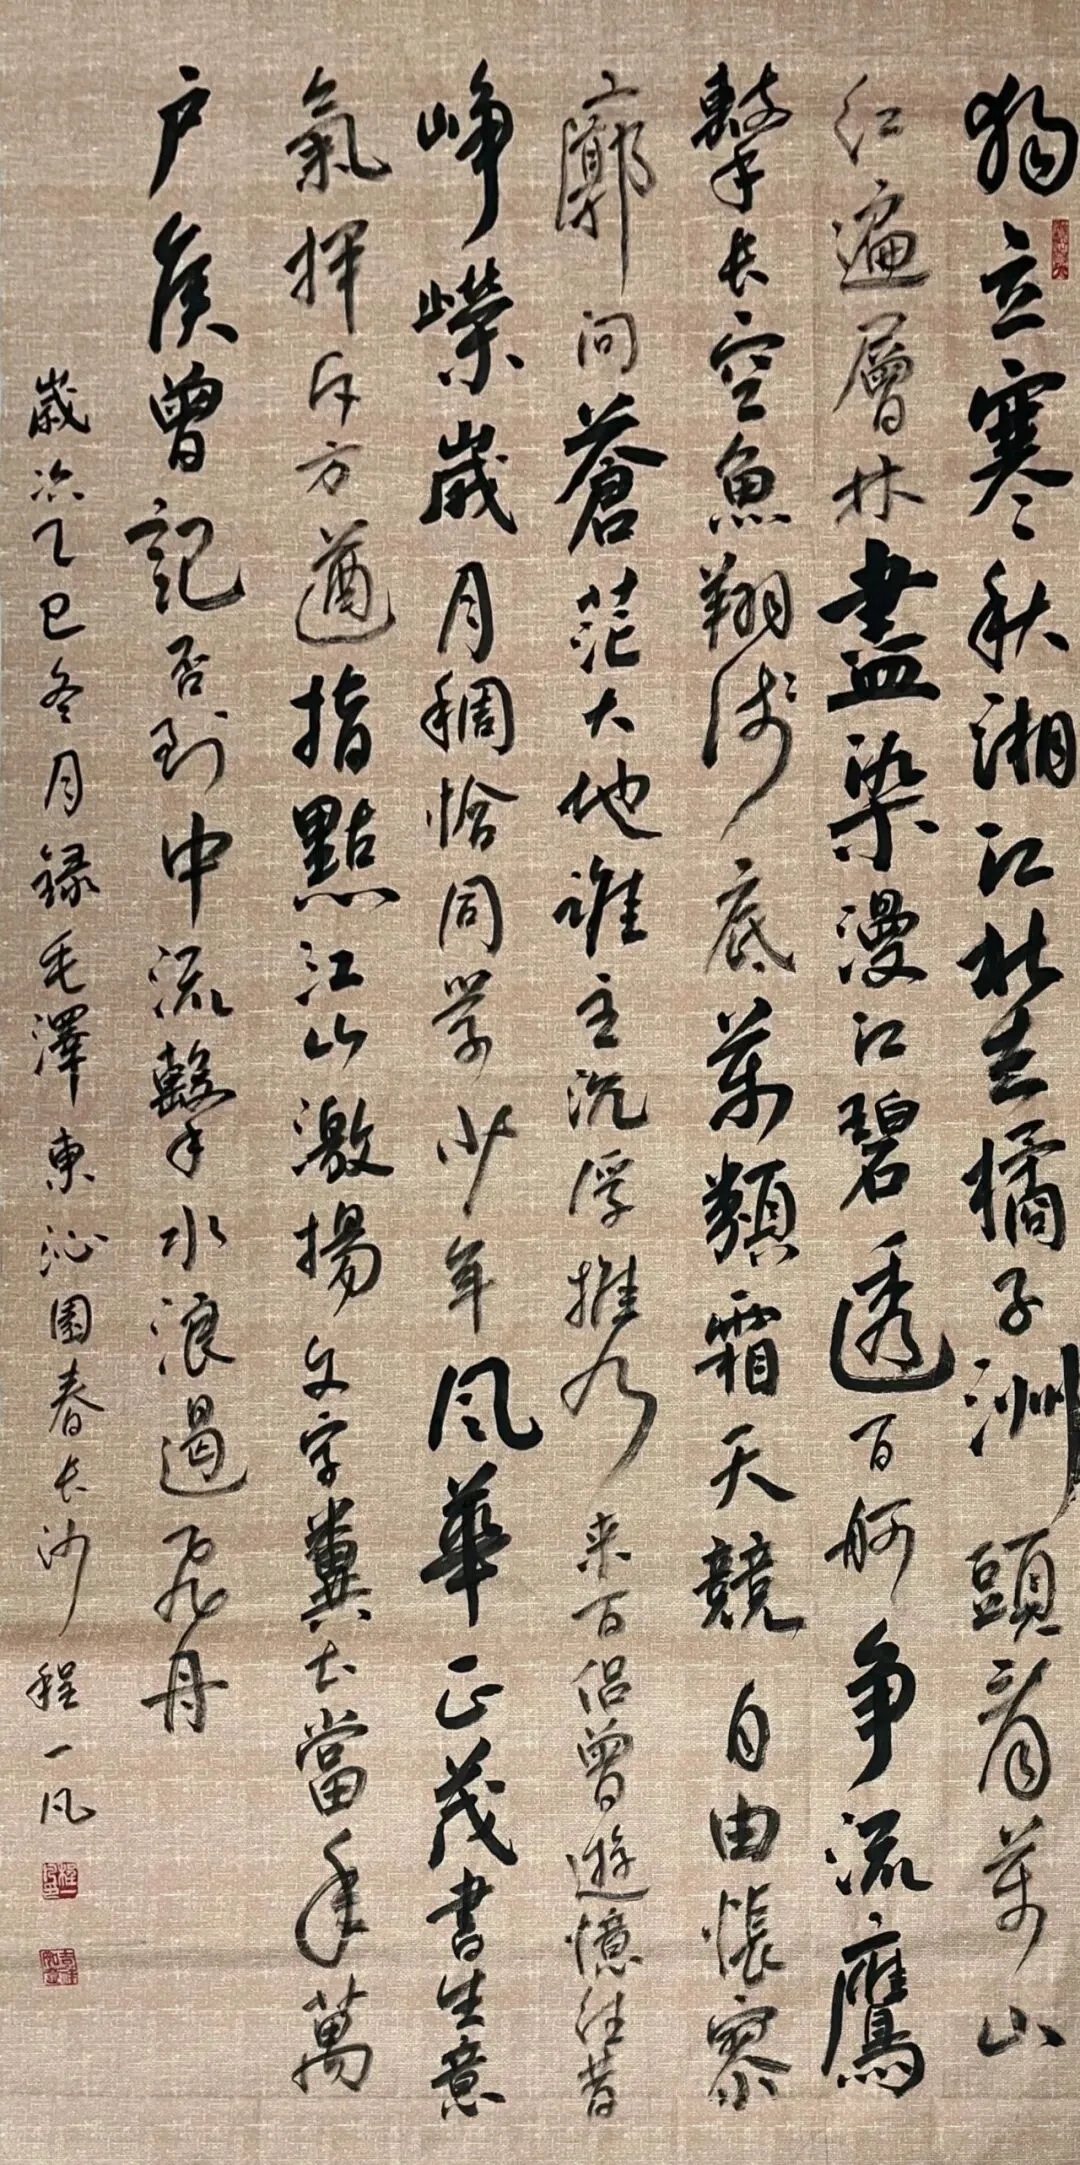 獨立寒秋湘江北去橘子洲頭看萬山
紅遍層林盡染漫江碧透百舸爭流鷹
擊長空魚翔淺底萬類霜天競自由悵寥
廓問蒼茫大地誰主沉浮携来百侶曾遊憶往昔
崢嶸歲月稠恰同學少年風華正茂書生意
氣揮斥方遒指點江山激揚文字糞土當年萬
户侯曾記否到中流擊水浪遏飛舟
歲次乙巳冬月録毛澤東沁園春長沙程一凡